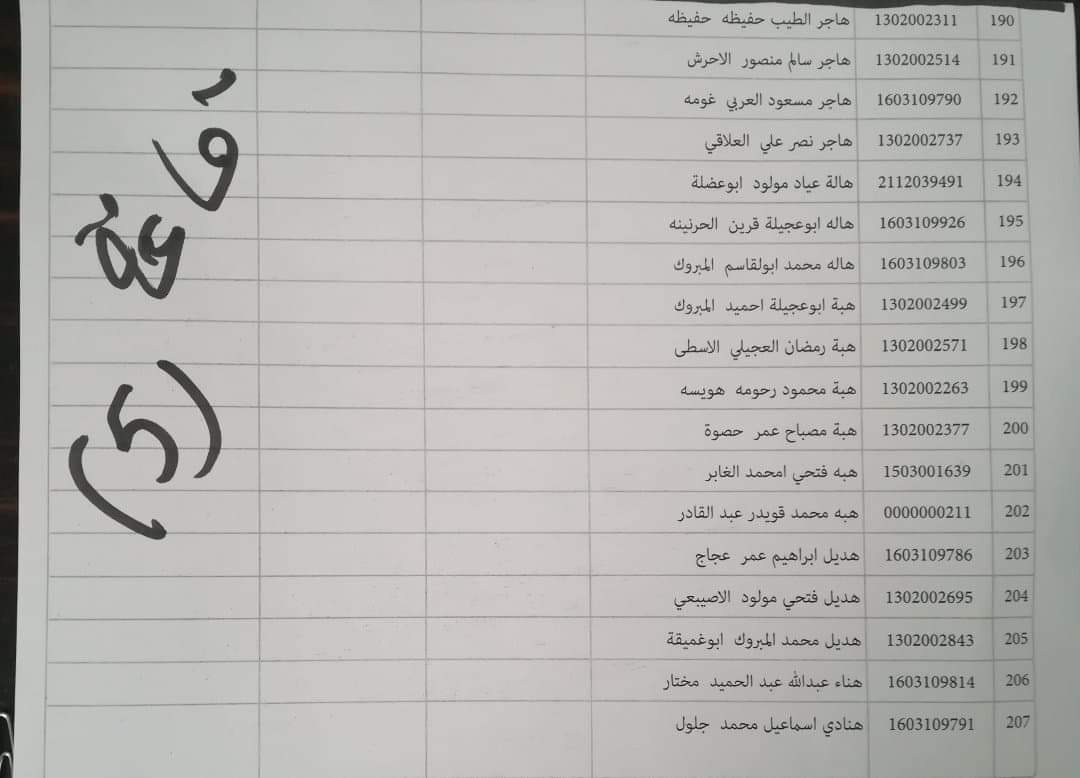 190 1302002311 هاجر الطيب حفيظه حفيظه
191 1302002514 هاجر سالم منصور الاحرش
192 1603109790 هاجر مسعود العربي غومه
193 1302002737 هاجر نصر علي العلاقي
194 2112039491 هالة عياد مولود ابوعضلة
195 1603109926 هاله ابوعجيلة قرين الحرنينه
196 1603109803 هاله محمد ابولقاسم المبروك
197 1302002499 هبة ابوعجيلة احميد المبروك
198 1302002571 هبة رمضان العجيلي الاسطى
199 1302002263 هبة محمود رحومه هويسه
200 1302002377 هبة مصباح عمر حصوة
201 1503001639 هبه فتحي امحمد الغابر
202 0000000211 هبه محمد قويدر عبد القادر
203 1603109786 هديل ابراهيم عمر عجاج
204 1302002695 هديل فتحي مولود الاصيبعي
205 1302002843 هديل محمد المبروك ابوغميقة
206 1603109814 هناء عبدالله عبد الحميد مختار
207 1603109791 هنادي اسماعيل محمد جلول
قاعة (5)